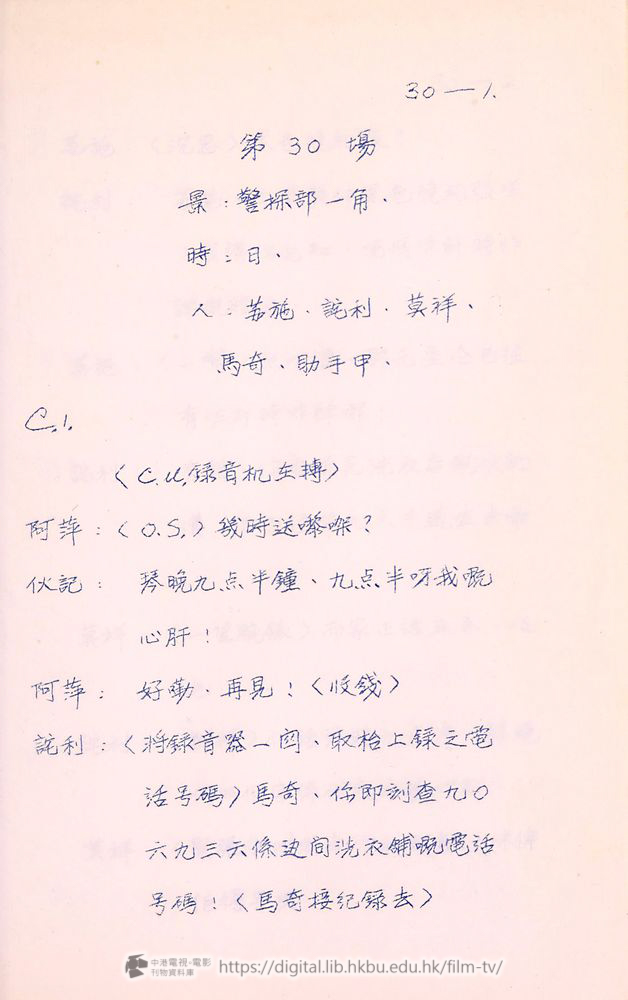 30 — 1.
第 30 場
景：警探部一角．
時：日．
人：荔施．詫利．莫祥．
馬奇、助手甲．
C.1.
〈C.U.錄音机在轉〉
阿萍：〈O.S.〉幾時送嚟㗎？
伙記：琴晚九点半鐘、九点半呀我嘅
心肝！
阿萍：好嘞．再見！〈收錢〉
詫利：〈將錄音器一闩、取枱上錄之電
話号碼〉馬奇、你即刻查九〇
六九三六係边间洗衣鋪嘅電話
号碼！〈馬奇接紀錄去〉
中港電視・電影
刊物資料庫
https://digital.lib.hkbu.edu.hk/film-tv/